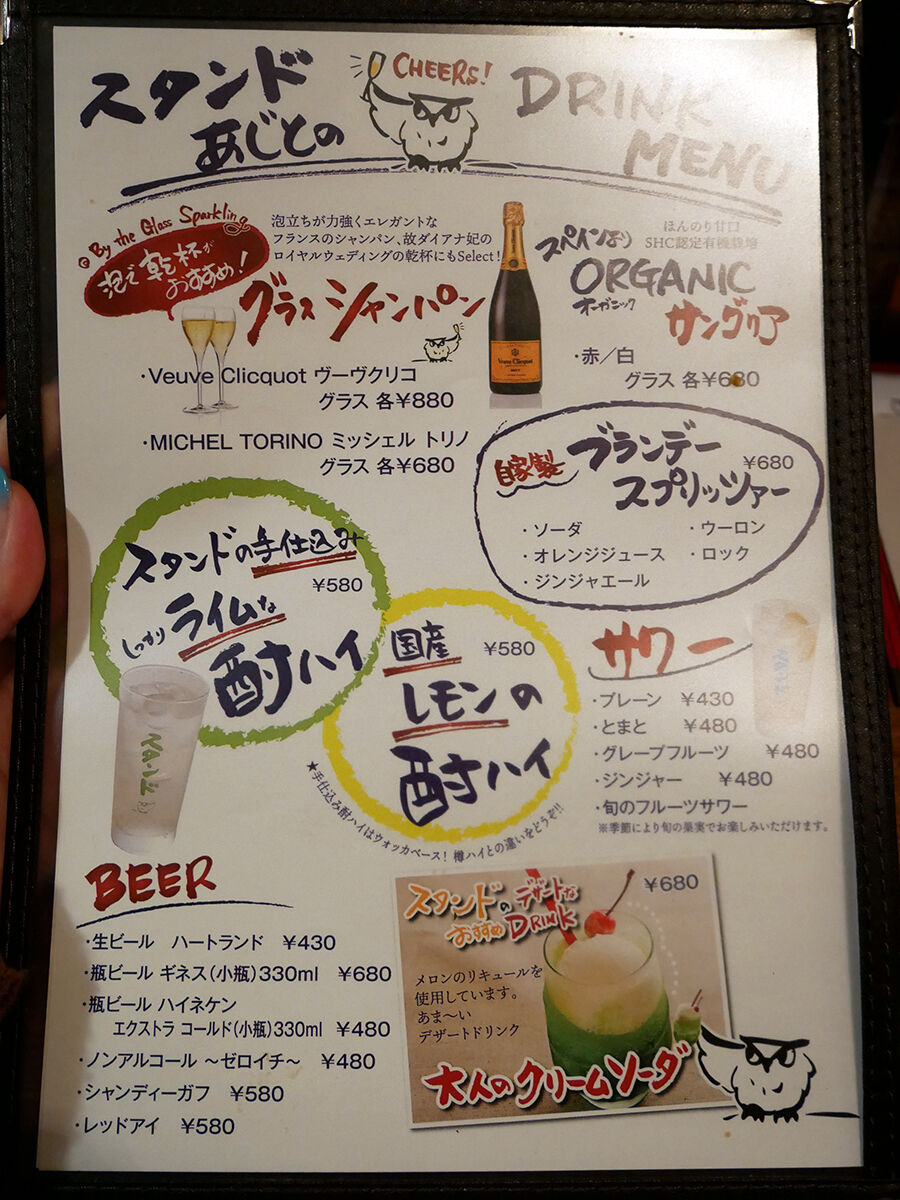 スタンド
あじとの
CHEERS!
DRINK
MENU
By the Glass Sparkling
泡で乾杯が
おすすめ!
泡立ちが力強くエレガントな
フランスのシャンパン、故ダイアナ妃の
ロイヤルウェディングの乾杯にもSelect!
グラスシャンパン
・Veuve Clicquot ヴーヴクリコ
グラス 各¥880
・MICHEL TORINO ミッシェル トリノ
グラス 各¥680
Veuve Clicquot
BRUT
ほんのり甘口
SHC認定有機栽培
スペインより
ORGANIC
オーガニック
サングリア
・赤/白
グラス 各¥680
自家製
ブランデー
スプリッツァー
¥680
・ソーダ
・ウーロン
・オレンジジュース
・ロック
・ジンジャエール
スタンドの手仕込み
¥580
しっかり ライムな
酎ハイ
国産
¥580
レモンの
酎ハイ
★手仕込み酎ハイはウオッカベース! 樽ハイとの違いをどうぞ!!
サワー
・プレーン ¥430
・とまと ¥480
・グレープフルーツ ¥480
・ジンジャー ¥480
・旬のフルーツサワー
※季節により旬の果実でお楽しみいただけます。
BEER
・生ビール ハートランド ¥430
・瓶ビール ギネス(小瓶)330ml ¥680
・瓶ビール ハイネケン
エクストラ コールド(小瓶)330ml ¥480
・ノンアルコール 〜ゼロイチ〜 ¥480
・シャンディーガフ ¥580
・レッドアイ ¥580
スタンドの
おすすめ
デザートな
DRINK
¥680
メロンのリキュールを
使用しています。
あま〜い
デザートドリンク
大人のクリームソーダ